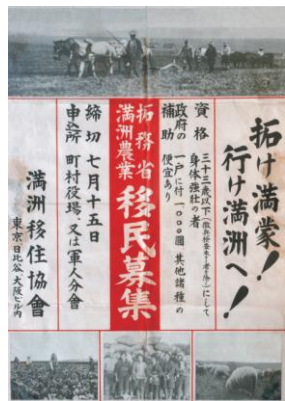 拓け満蒙!
行け満洲へ!
資格 三十三歳以下(徴兵検査未了者を除く)にして
身体強壮の者
政府の補助 一戸に付一〇〇〇圓 其他諸種の
便宜あり
拓務省
満洲農業
移民募集
締切 七月十五日
申込所 町村役場、又は軍人分會
満洲移住協會
東京日比谷大阪ビル内